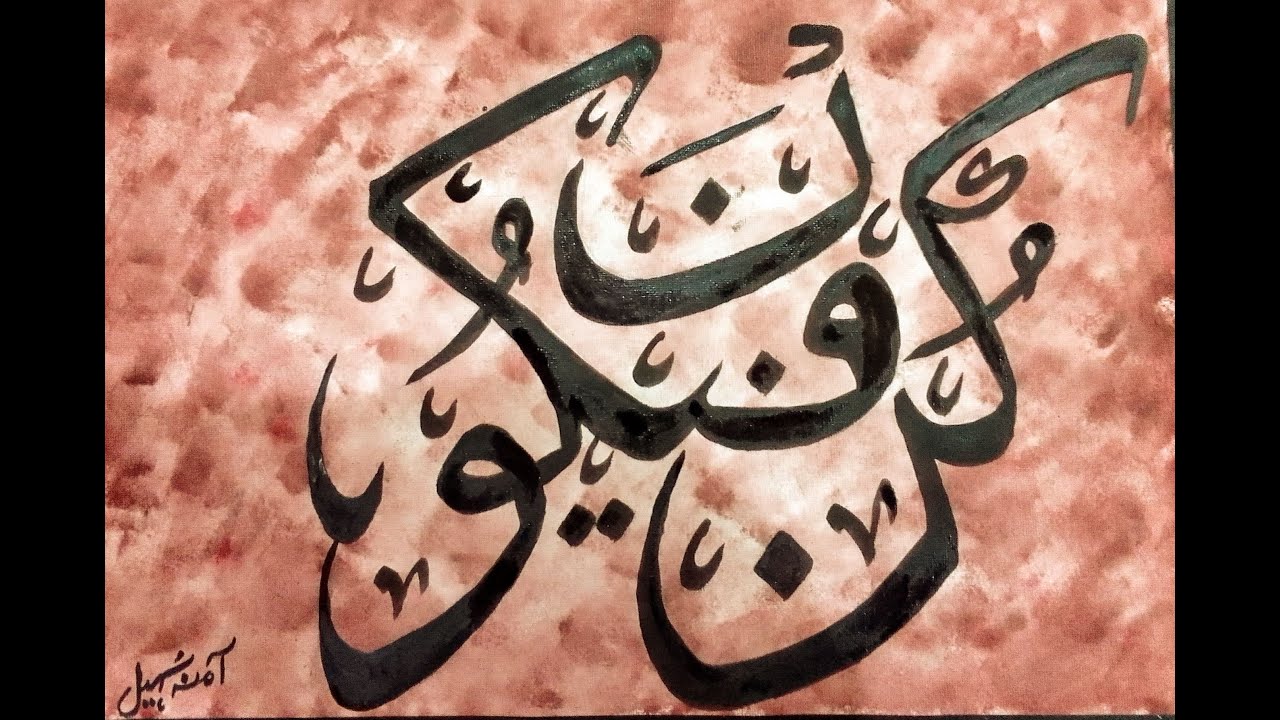 كُنْ فَيَكُونُ
آمنہ سہیل